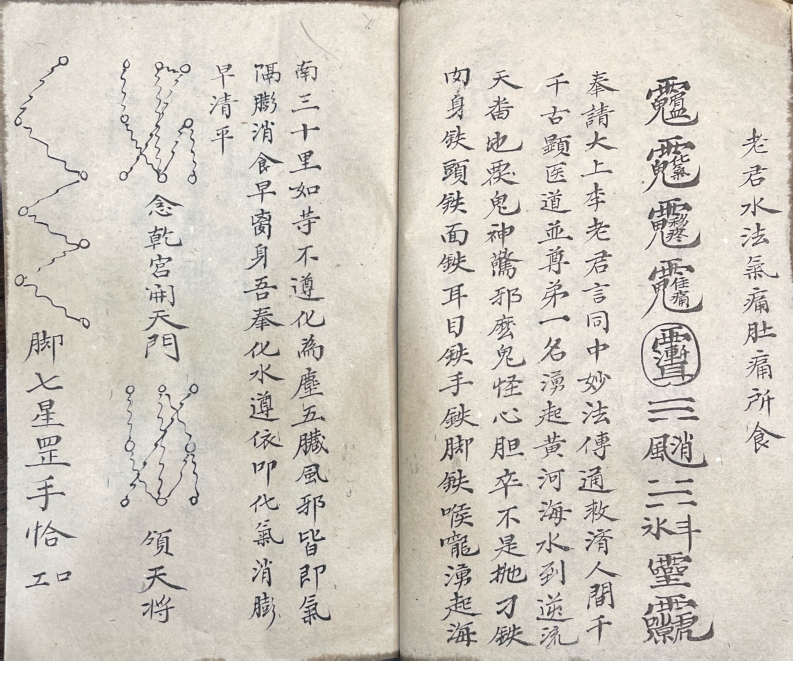 老君水法氣痛肚痛所食
奉請大上李老君言同中妙法傳通救濟人間千
千古顕医道並尊弟一名湧起黄河海水到逆流
天番地裂鬼神驚邪麽鬼怪心胆卒不是抛刁鉄
肉身鉄頭鉄面鉄耳目鉄手鉄脚鉄喉嚨湧起海
南三十里如若不遵化為塵五臓風邪皆即氣
隔膨消食早
身吾奉化水遵依叩化氣消膨
早清平
念乾宮開天門
領天将
脚七星罡手恰